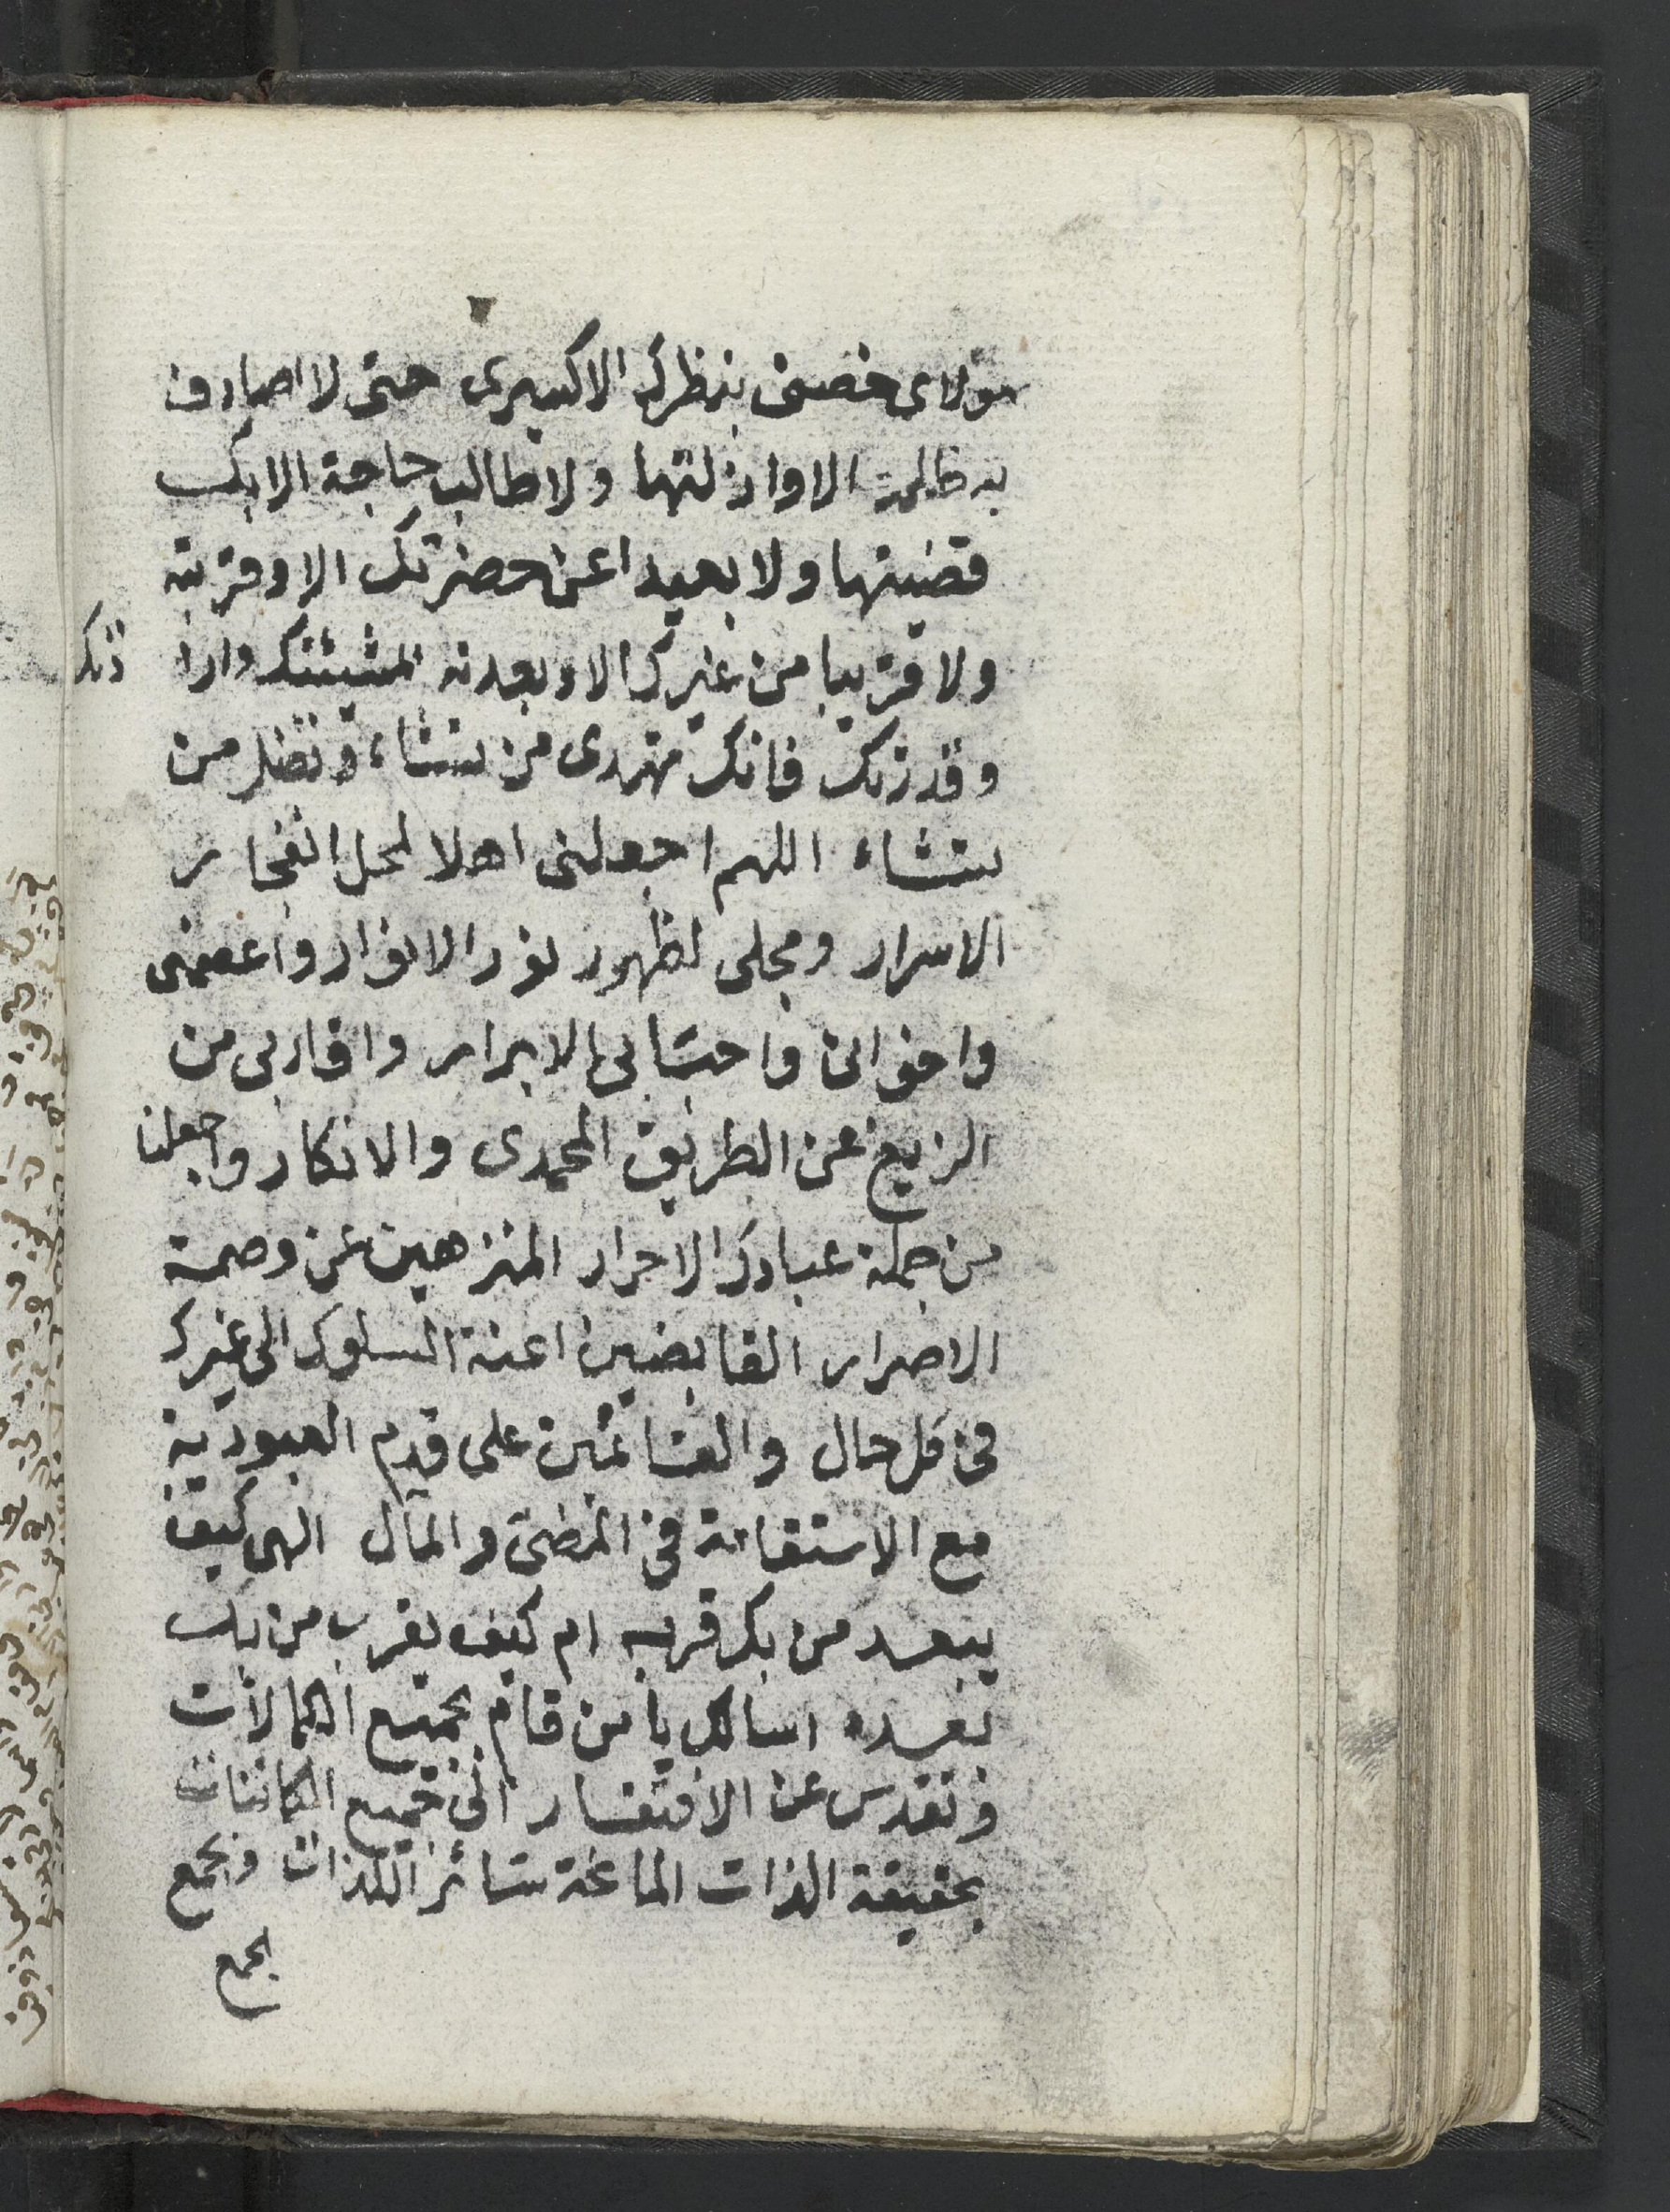 مولاى خصنى بنظرك الاكسيرى حتى لا اصادف
به ظلمة الا وازلتها ولا طالب حاجة الا بك
قضيتها ولا بعيدا عن حضرتك الا وقربته
ولا قريبا من غيرك الا وبعدته لمشيئتك وارا دتك
وقدرتك فانك تهدى من تشاء وتضل من
تشاء اللهم اجعلنى اهلا لمحل انفجار
الاسرار ومجلى لظهور نور الانوار واعصمنى
واخوانى واحبتابى الابرار واقاربى من
الزيغ عن الطريق المحمدى والانكار واجعلنا
من جملة عبادك الاحرار المنزهين عن وصمة
الاصرار القابضين اعنة السلوك الى غيرك
فى كل حال والقائمين على قدم العبودية
مع الاستقامة فى المضى والمآل الهى كيف
يبعد من بك قربه ام كيف يقرب من بك
بعده اسالك يا من قام بجميع الكمالات
وتقدس عن الافتقار الى جميع الكائنات
بحقيقة الذات الماغة سائر اللذات وبجمع
بجمع